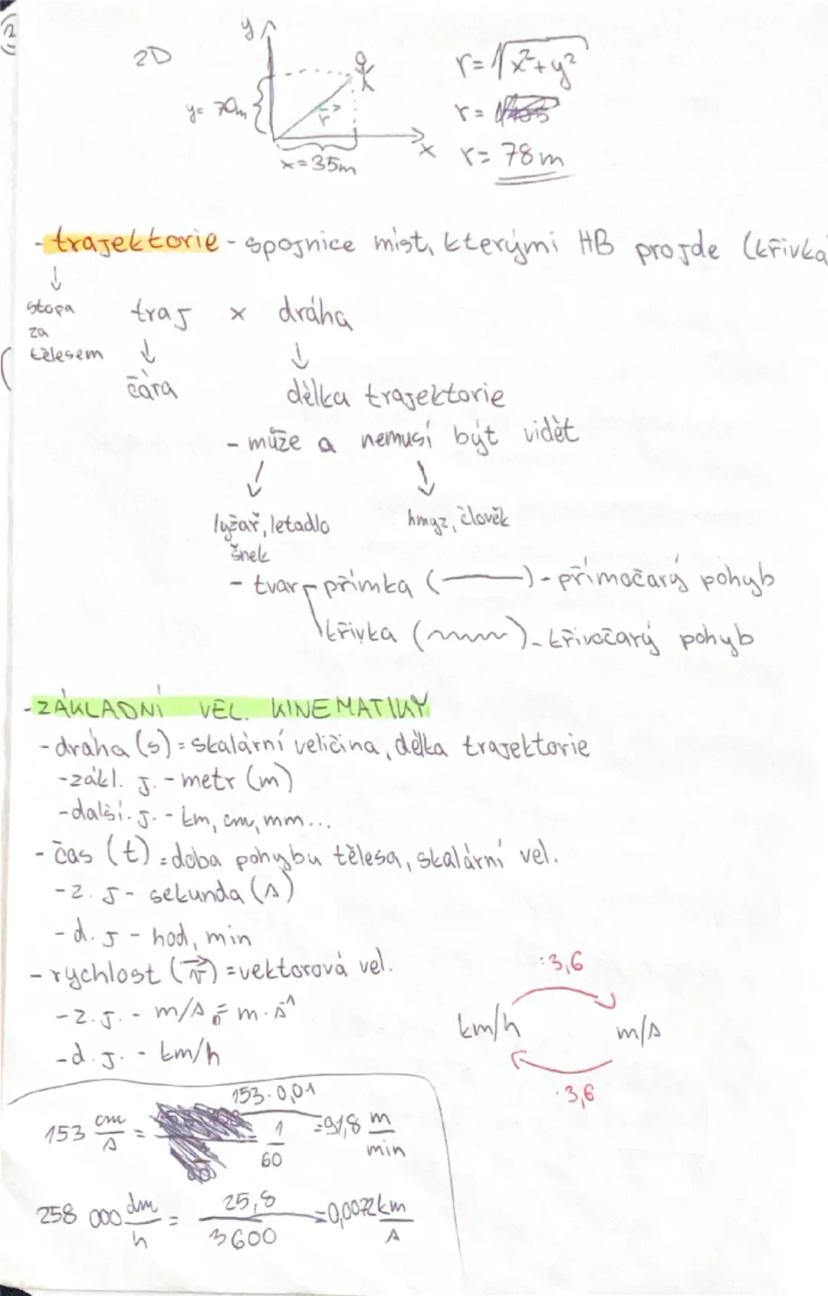 2D
y
y= 70m
r
x=35m
x
r=√x²+y²
r=
r= 78m
-trajektorie - spojnice míst, kterými HB projde (křivka
↓
stopa za tělesem
traj x dráha
↓ ↓
čára délka trajektorie
- může a nemusí být vidět
↓ ↓
lyžař, letadlo hmyz, člověk
šnek
- tvar přímka ( —— ) - přímočarý pohyb
křivka ( ~~~ ) - křivočarý pohyb
-ZÁKLADNÍ VEL. KINEMATIKY
-dráha (s) = skalární veličina, délka trajektorie
-zákl. j. - metr (m)
-další. j. - km, cm, mm...
- čas (t) = doba pohybu tělesa, skalární vel.
-z. j - sekunda (s)
-d. j - hod, min
- rychlost (v⃗) = vektorová vel.
-z. j. - m/s = m·s⁻¹
-d. j. - km/h
:3,6
km/h m/s
·3,6
153 cm/s = 153·0,01 / 1/60 = 91,8 m/min
258 000 dm/h = 25,8/3600 = 0,0072 km/s